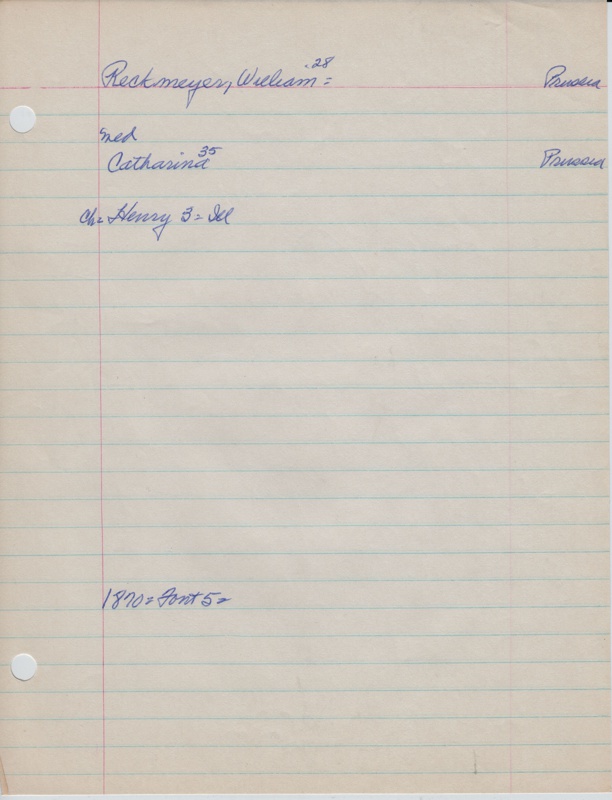 Reckmeyer, William 28 = Prussia
med
Catharina 35 Prussia
Ch = Henry 3 = Ill
1870 = Font 5 =